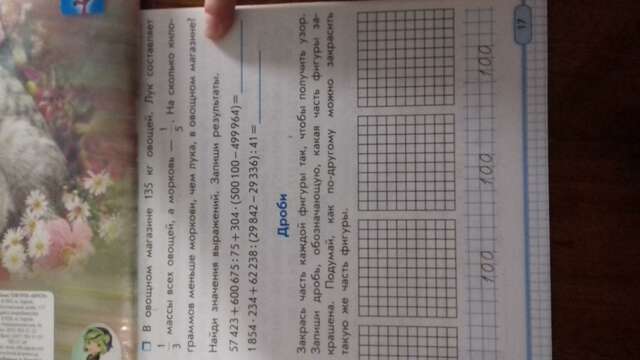 В овощном магазине 135 кг овощей. Лук составляет
1/3 массы всех овощей, а морковь — 1/5. На сколько кило-
граммов меньше моркови, чем лука, в овощном магазине?
Найди значения выражений. Запиши результаты.
57 423 + 600 675 : 75 + 304 · (500 100 − 499 964) =
1 854 · 234 + 62 238 : (29 842 − 29 336) : 41 =
Дроби
Закрась часть каждой фигуры так, чтобы получить узор.
Запиши дробь, обозначающую, какая часть фигуры за-
крашена. Подумай, как по-другому можно закрасить
такую же часть фигуры.
100 100 100
17